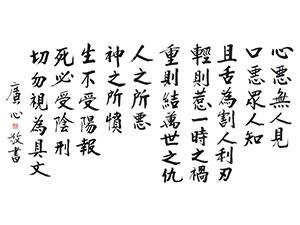 心惡無人見
口惡眾人知
且舌為割人利刃
輕則惹一時之禍
重則結萬世之仇
人之所惡
神之所憤
生不受陽報
死必受陰刑
切勿視為具文
廣心敬書